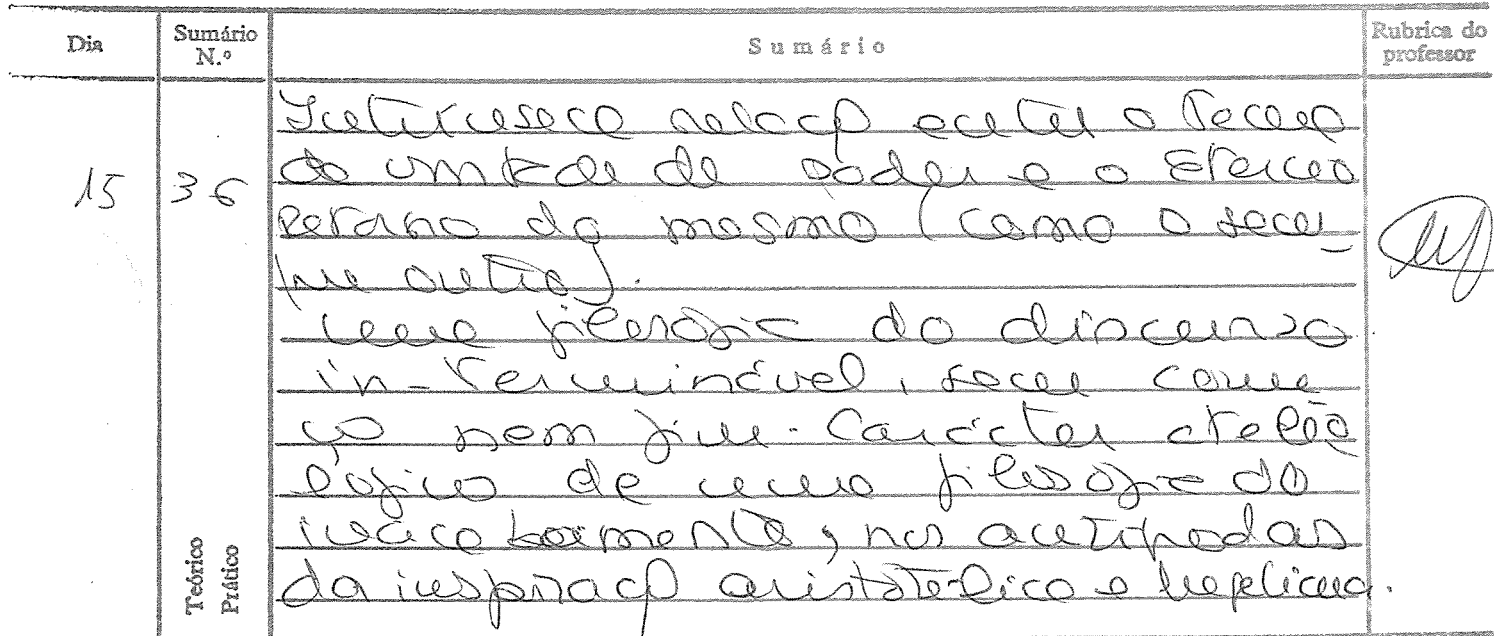 Dia
Sumário N.º
Sumário
Rubrica do professor
15
36
Teórico
Prático
Intrínseca relação entre o tema
da vontade de poder e o eterno
retorno do mesmo (como o sem-
pre outro).
Uma filosofia do discurso
in-terminável, sem come
ço nem fim. Carácter ateleo
lógico de uma filosofia do
inacabamento, nos antípodas
da inspiração aristotélica e hegeliana.